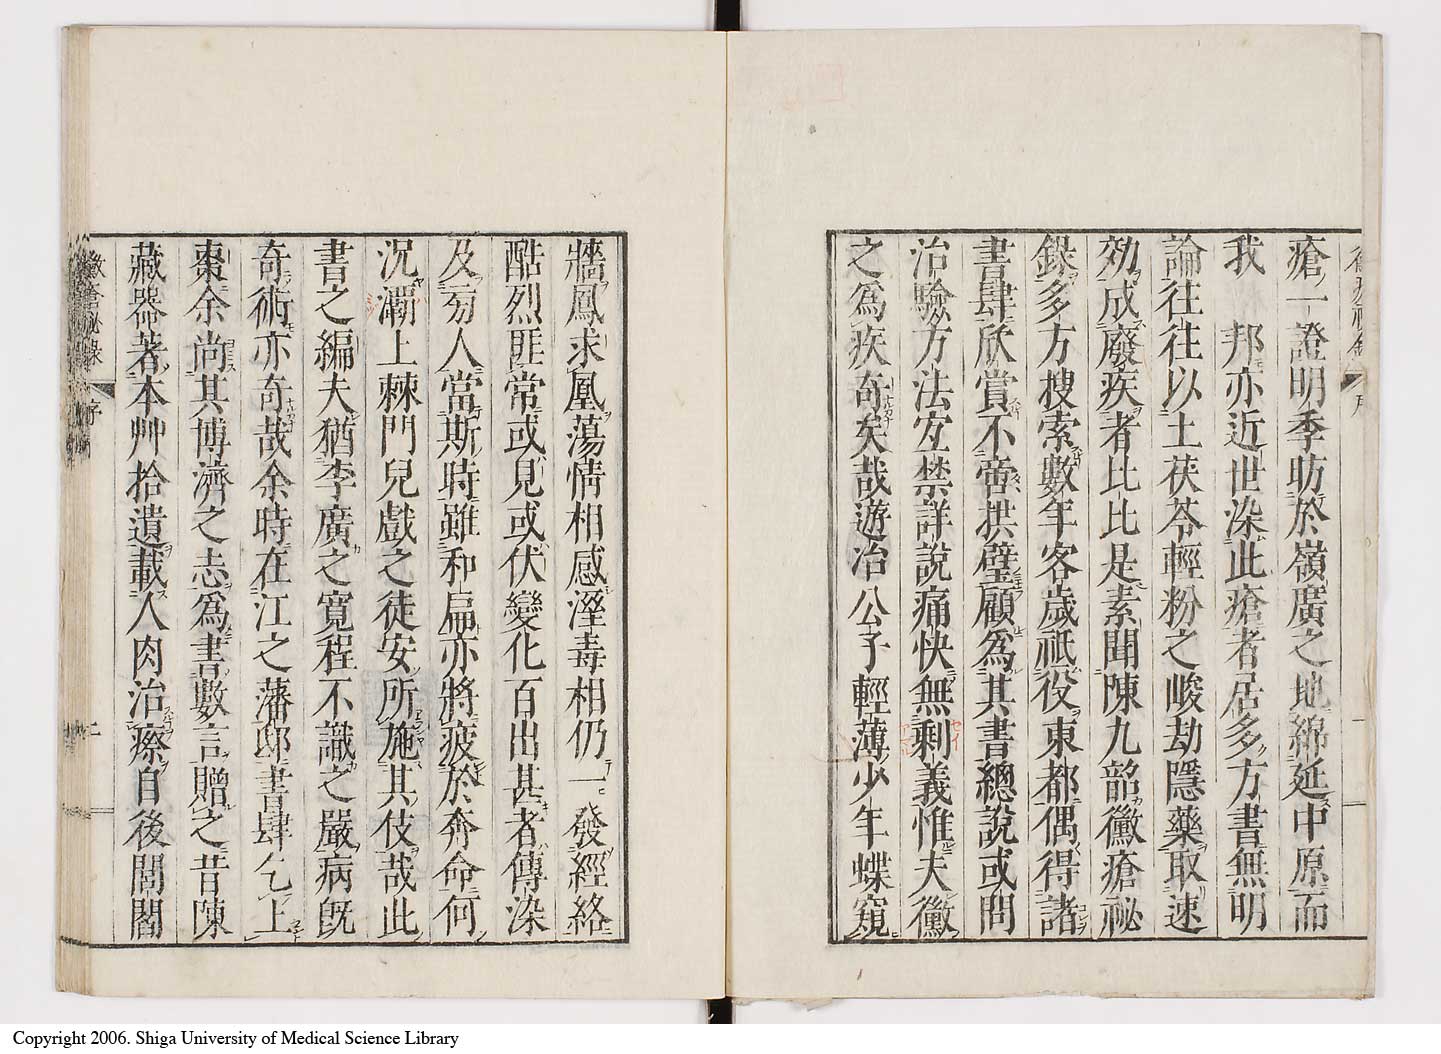 瘡一證明季昉於嶺廣之地綿延中原而
我　邦亦近世染此瘡者居多方書無明
論往往以土茯苓輕粉之峻劫隱藥取速
効成廢疾者比比是素聞陳九韶黴瘡祕
錄多方搜索數年客歲祇役東都偶得諸
書肆欣賞不啻拱璧顧爲其書總說或問
治驗方法宜禁詳說痛快無剩義惟夫黴
之爲疾奇矣哉遊冶公子輕薄少年蝶窺
牆鳳求凰蕩情相感溼毒相仍一發經絡
酷烈匪常或見或伏變化百出甚者傳染
及旁人當斯時雖和扁亦將疲於奔命何
況灞上棘門兒戲之徒安所施其伎哉此
書之編夫猶李廣之寬程不識之嚴病旣
奇術亦奇哉余時在江之藩邸書肆乞上
棗余尚其博濟之志爲書數言贈之昔陳
藏器著本艸拾遺載人肉治瘵自後閭閻
黴瘡祕錄　序
Copyright 2006. Shiga University of Medical Science Library